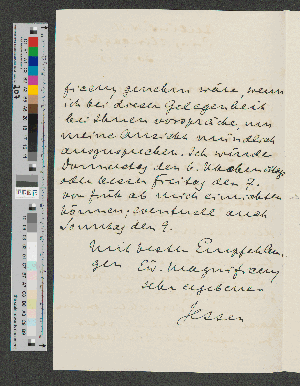 fizenz genehm wäre, wenn
ich bei dieser Gelegenheit
bei Ihnen vorspräche, um
meine Ansicht mündlich
auszusprechen. Ich würde
Donnerstag den 6. nachmittags
oder besser Freitag den 7.
von früh ab mich einrichten
können; eventuell auch
Sonntag den 9.
Mit besten Empfehlun-
gen Ew. Magnifizenz
sehr ergebener
Jessen